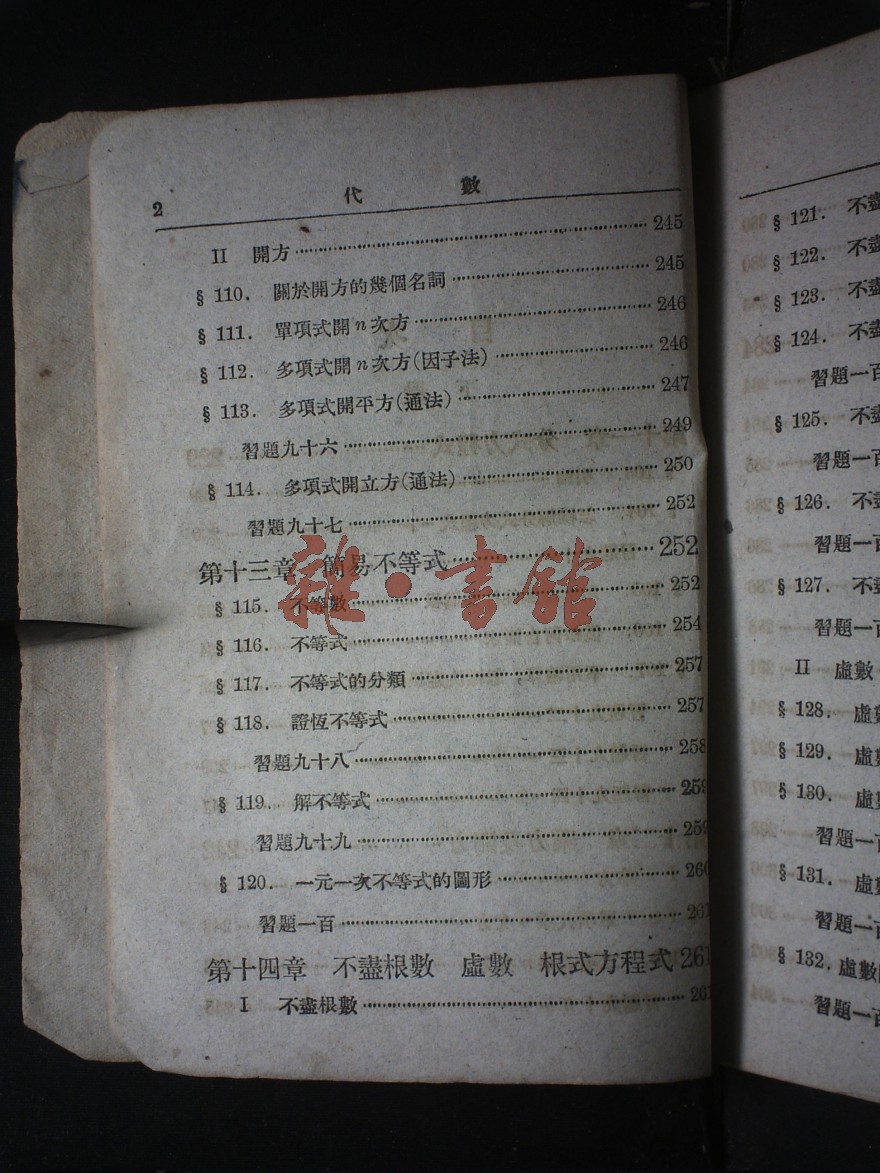 2 代 數
II 開方 245
§ 110. 關於開方的幾個名詞 245
§ 111. 單項式開n次方 246
§ 112. 多項式開n次方(因子法) 246
§ 113. 多項式開平方(通法) 247
習題九十六 249
§ 114. 多項式開立方(通法) 250
習題九十七 252
第十三章 簡易不等式 252
§ 115. 不等數 252
§ 116. 不等式 254
§ 117. 不等式的分類 257
§ 118. 證恆不等式 257
習題九十八 258
§ 119. 解不等式 259
習題九十九 259
§ 120. 一元一次不等式的圖形 260
習題一百 261
第十四章 不盡根數 虛數 根式方程式 261
I 不盡根數 261
雜·書館
§ 121. 不盡
§ 122. 不盡
§ 123. 不盡
§ 124. 不
習題一百
§ 125. 不盡
習題一
§ 126. 不盡
習題一百
§ 127. 不
習題一百
II 虛數
§ 128. 虛
§ 129. 虛數
§ 130. 虛
習題一百
§ 131. 虛
習題一百
§ 132. 虛數
習題一百